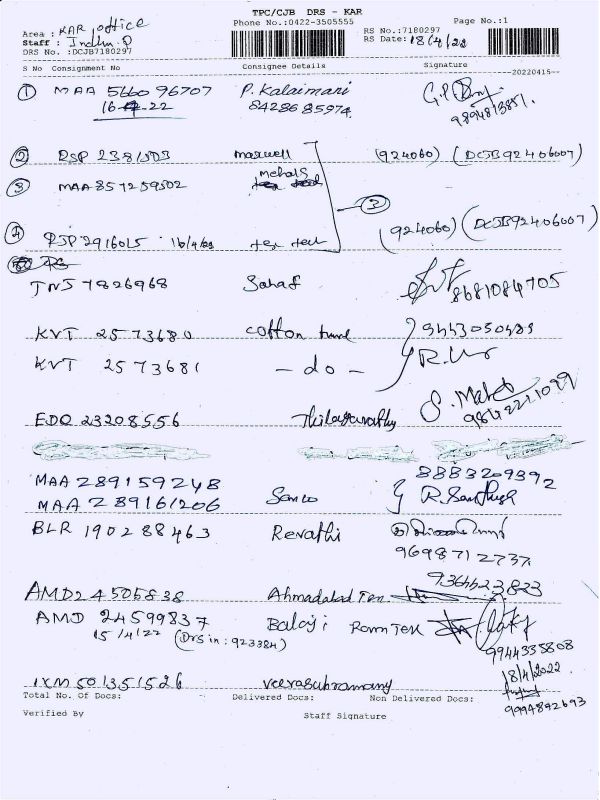 TPC/CJB DRS - KAR
Area : KAR office Phone No.:0422-3505555 Page No.:1
Staff : Indhu. P RS No.:7180297
DRS No. :DCJB7180297 RS Date: 18/4/22
S No Consignment No Consignee Details Signature
--20220415--
① MAA 566096707 P. Kalaimani
16-4-22 8428685974 9894813851.
② RSP 2381503 maxwell (924060) (DCJB92406007)
③ MAA 857259502
③
④ PJP 2916015 16/4/22 tex tech (924060) (DCJB92406007)
JNJ 7826968 8681084705
KVT 2573680 cotton 9443050489
KVT 2573681 - do -
S.
EDQ 23208556 Thilagavathy 9842221099
MAA 289159248 8883209392
MAA 289161206 Sanco R. Santhosh
BLR 190288463 Revathi
9698712737.
AMD 24505838 Ahmadabad Tex.
AMD 24599837 Balaji Ram Tex
15/4/22 (Drs in : 923384) 9944335808
18/4/2022
IXM 501351526 veerasubramany
Total No. Of Docs: Delivered Docs: Non Delivered Docs: 9994892693
Verified By Staff Signature